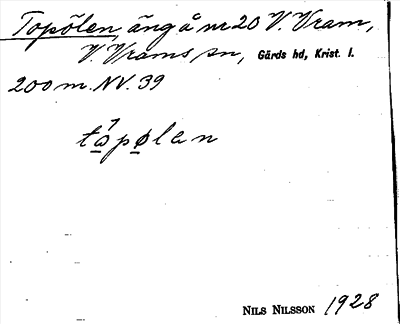 Topölen, äng å nr 20 V. Vram,
V. Vrams sn, Gärds hd, Krist. l.
200 m. NV. 39
to̲pø̲lan
NILS NILSSON 1928